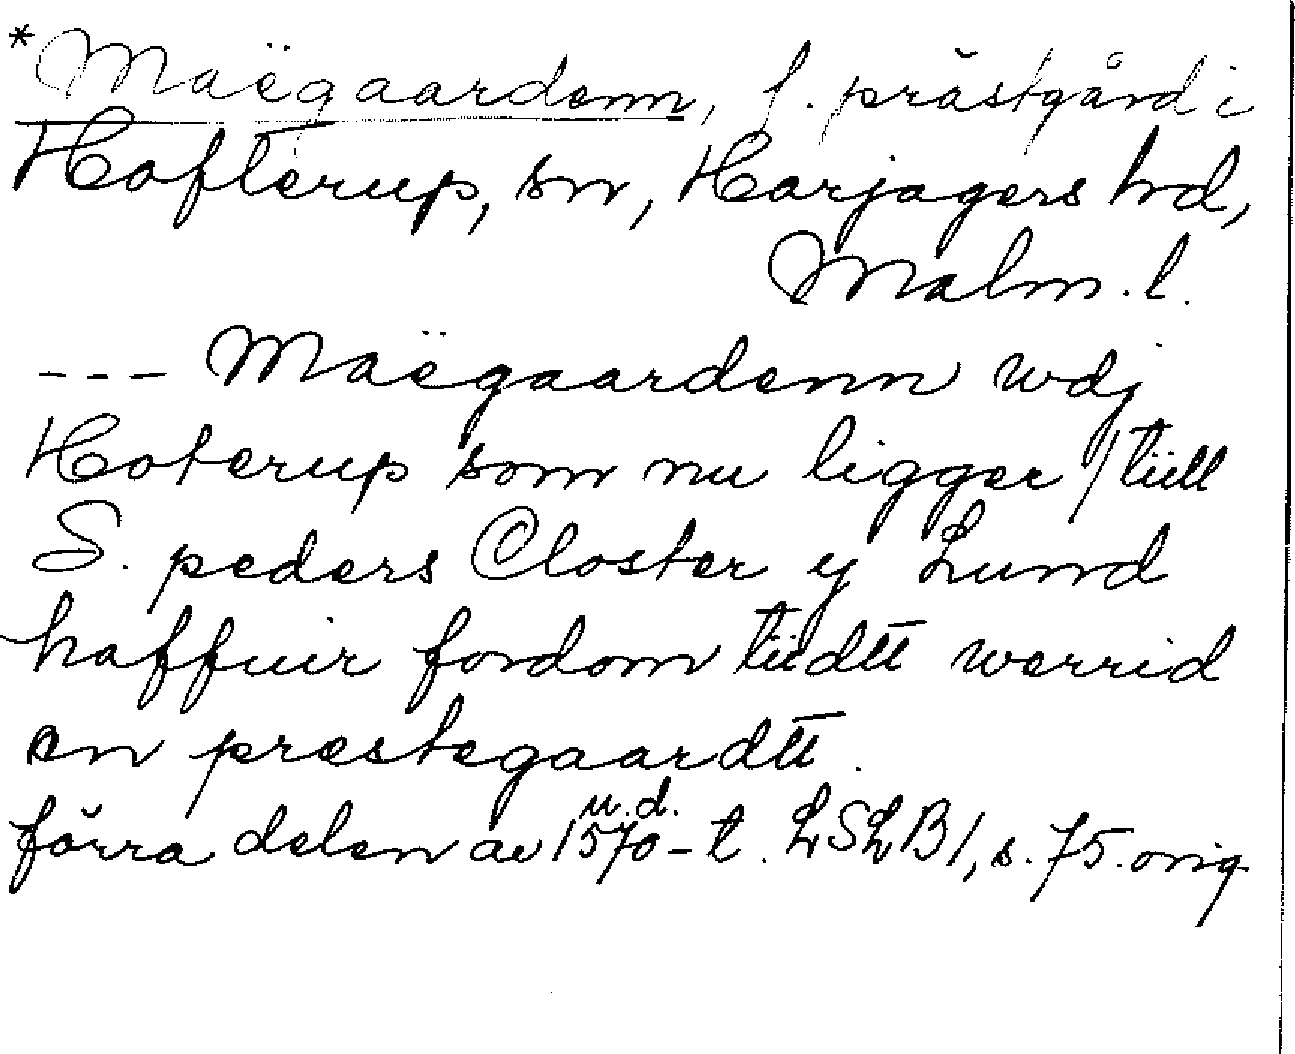 *Maëgaardenn, f. prästgård i
Hofterup, sn, Harjagers hd,
Malm. l.
--- Maëgaardenn wdj
Hoterup som nu ligger / tiill
S. peders Closter y Lund
haffuir fordom tiidtt werrid
en prestegaardtt.
u.d.
förra delen av 1570-t. LSLB1, s. 75. orig